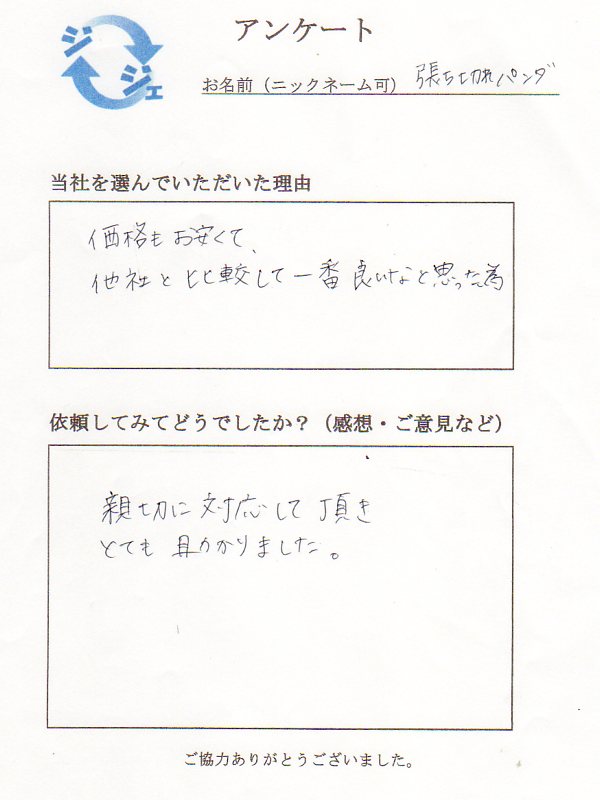 ジジェ
アンケート
お名前（ニックネーム可） 張ち切れパンダ
当社を選んでいただいた理由
価格もお安くて、
他社と比較して一番良いなと思った為
依頼してみてどうでしたか？（感想・ご意見など）
親切に対応して頂き
とても助かりました。
ご協力ありがとうございました。